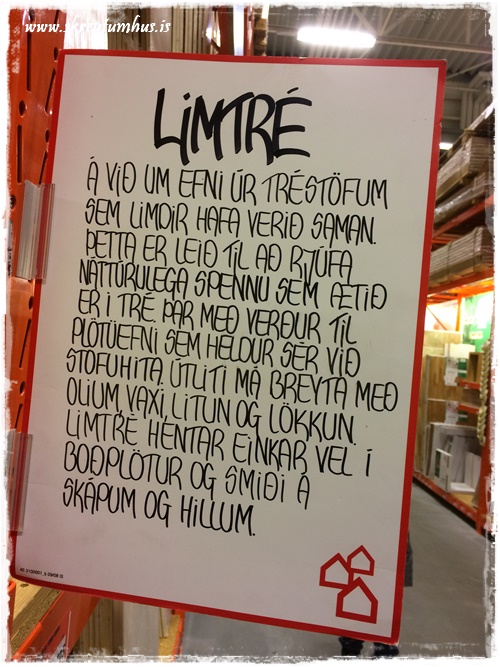 www.skreytumhus.is
LIMTRÉ
Á VIÐ UM EFNI ÚR TRÉSTÖFUM
SEM LIMDIR HAFA VERIÐ SAMAN.
ÞETTA ER LEIÐ TIL AÐ RJÚFA
NÁTTÚRULEGA SPENNU SEM ÆTIÐ
ER I TRÉ. ÞAR MEÐ VERÐUR TIL
PLÖTUEFNI SEM HELDUR SÉR VIÐ
STOFUHITA. ÚTLITI MÁ BREYTA MEÐ
OLIUM, VAXI, LITUN OG LÖKKUN.
LIMTRÉ HENTAR EINKAR VEL Í
BOÐPLÖTUR OG SMIÐI Á
SKÁPUM OG HILLUM.